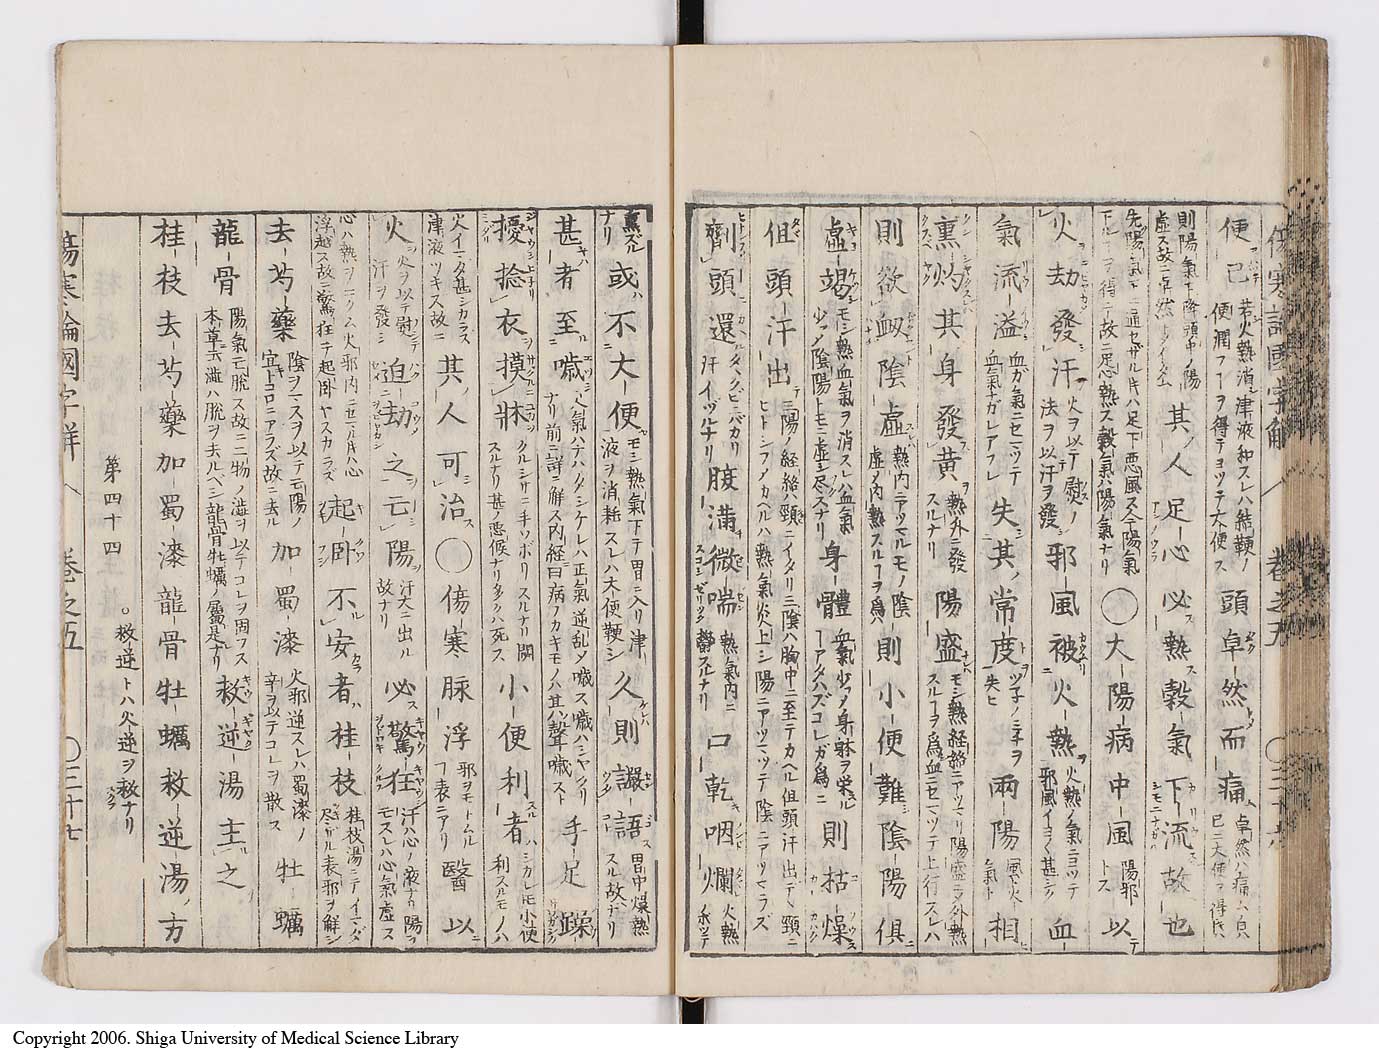 傷寒論國字解 卷之五
便已 若火熱消津液和スレハ結鞕ノ便潤フヿヲ得テヨツテ大便ス 頭卓然而痛 卓然ハ痛ム皃已ニ大便ヲ得氏
則陽氣下降頭中ノ陽虛ス故ニ卓然トイタム 其人足心必熱穀氣下流故也
先陽氣下ニ通セザル片ハ足下悪風ス今陽氣下ルヿヲ得テ故ニ足心熱ス穀氣ハ陽氣ナリ 〇大陽病中風 陽邪トス 以
火劫發汗 火ヲ以テ熨スノ法ヲ以汗ヲ發 邪風被火熱 火熱ノ氣ニヨツテ邪風イヨ〱甚シク 血
氣流溢 血カ氣ニセマツテ血氣ナガレアフレ 失其常度 ツ子ノミチヲ失ヒ 兩陽 風ト火ト 相
熏灼其身發黄 熱外ニ發スルナリ 陽盛 モシ熱経絡ニアツマリ陽盛ニ外熱スルヿヲ爲血ニセマツテ上行スレハ
則欲衂陰虛 熱内ニアツマルモノ陰虛ノ内熱スルヿヲ爲 則小便難陰陽俱
虛竭 モシ熱血氣ヲ消スレハ血氣少〆陰陽トモニ虛シ尽スナリ 身體 血氣少〆身躰ヲ栄スルヿアタハズコレガ爲ニ 則枯燥
但頭汗出 三陽ノ経絡ハ頸ニイタリ三陰ハ胸中ニ至テカヘル但頭汗出テ頸ニヒトシフ〆カヘルハ熱氣炎上シ陽ニアツマツテ陰ニアツマラズ
劑頭還 汗イヅルナリ 腹滿微喘 熱氣内ニ鬱スルナリ 口乾咽爛 火熱ホツテ
熏ズルナリ 或不大便 モシ熱氣下テ胃ニ入リ津液ヲ消耗スレハ大便鞕シ 久則讝語 胃中燥熱スル故ナリ
甚者至噦 火氣ハナハダシケレハ正氣逆乱〆噦ス噦ハシヤクリナリ前ニ詳ニ解ス内經曰病フカキモノハ其聲噦スト 手足躁
擾捻衣摸牀 クルシサニ手ツボリスルナリ甚ノ悪候ナリ多クハ死ス 小便利者 シカレ𪜈小便利スルモノハ
火イマタ甚シカラズ津液ツキス故 其人可治〇傷寒脉浮 邪ヲモトムルヿ表ニアリ 醫以
火 火ヲ以テ熨シ汗ヲ發シ 迫劫之亡陽 汗大ニ出ル故ナリ 必驚狂 汗ハ心ノ液ナリ陽ヲモスレハ心氣虛ス
心ハ熱ヲニクム火邪内ニセマル片ハ心浮越ス故ニ驚狂テ起卧ヤスカラズ 起卧不安者桂枝 桂枝湯ニテイマダ尽ザル表邪ヲ解シ
去芍藥 陰ヲマスヲ以テ亡陽ノ宜トコロニアラズ故ニ去ル 加蜀漆 火邪逆スレハ蜀漆ノ辛ヲ以テコレヲ散ス 牡蠣
龍骨 陽氣モ脫ス故ニ二物ノ澁ヲ以テコレヲ固フス本草ニ云澁ハ脫ヲ去ルベシ龍骨牡蠣ノ屬是ナリ 救逆湯主之
第四十四 〇救逆トハ火逆ヲ救ナリ
桂枝去芍藥加蜀漆龍骨牡蠣救逆湯方
傷寒論國字解 八 卷之五 〇三十七
Copyright 2006. Shiga University of Medical Science Library